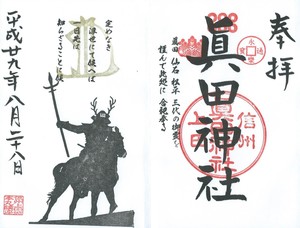 奉拝
眞田神社
真田 仙石 松平 三代の御霊を
謹んで此処に 合祀奉る
信州
上田
定めなき
浮世にて候へば
一日先は
知らざることに候
平成廿九年八月二十八日